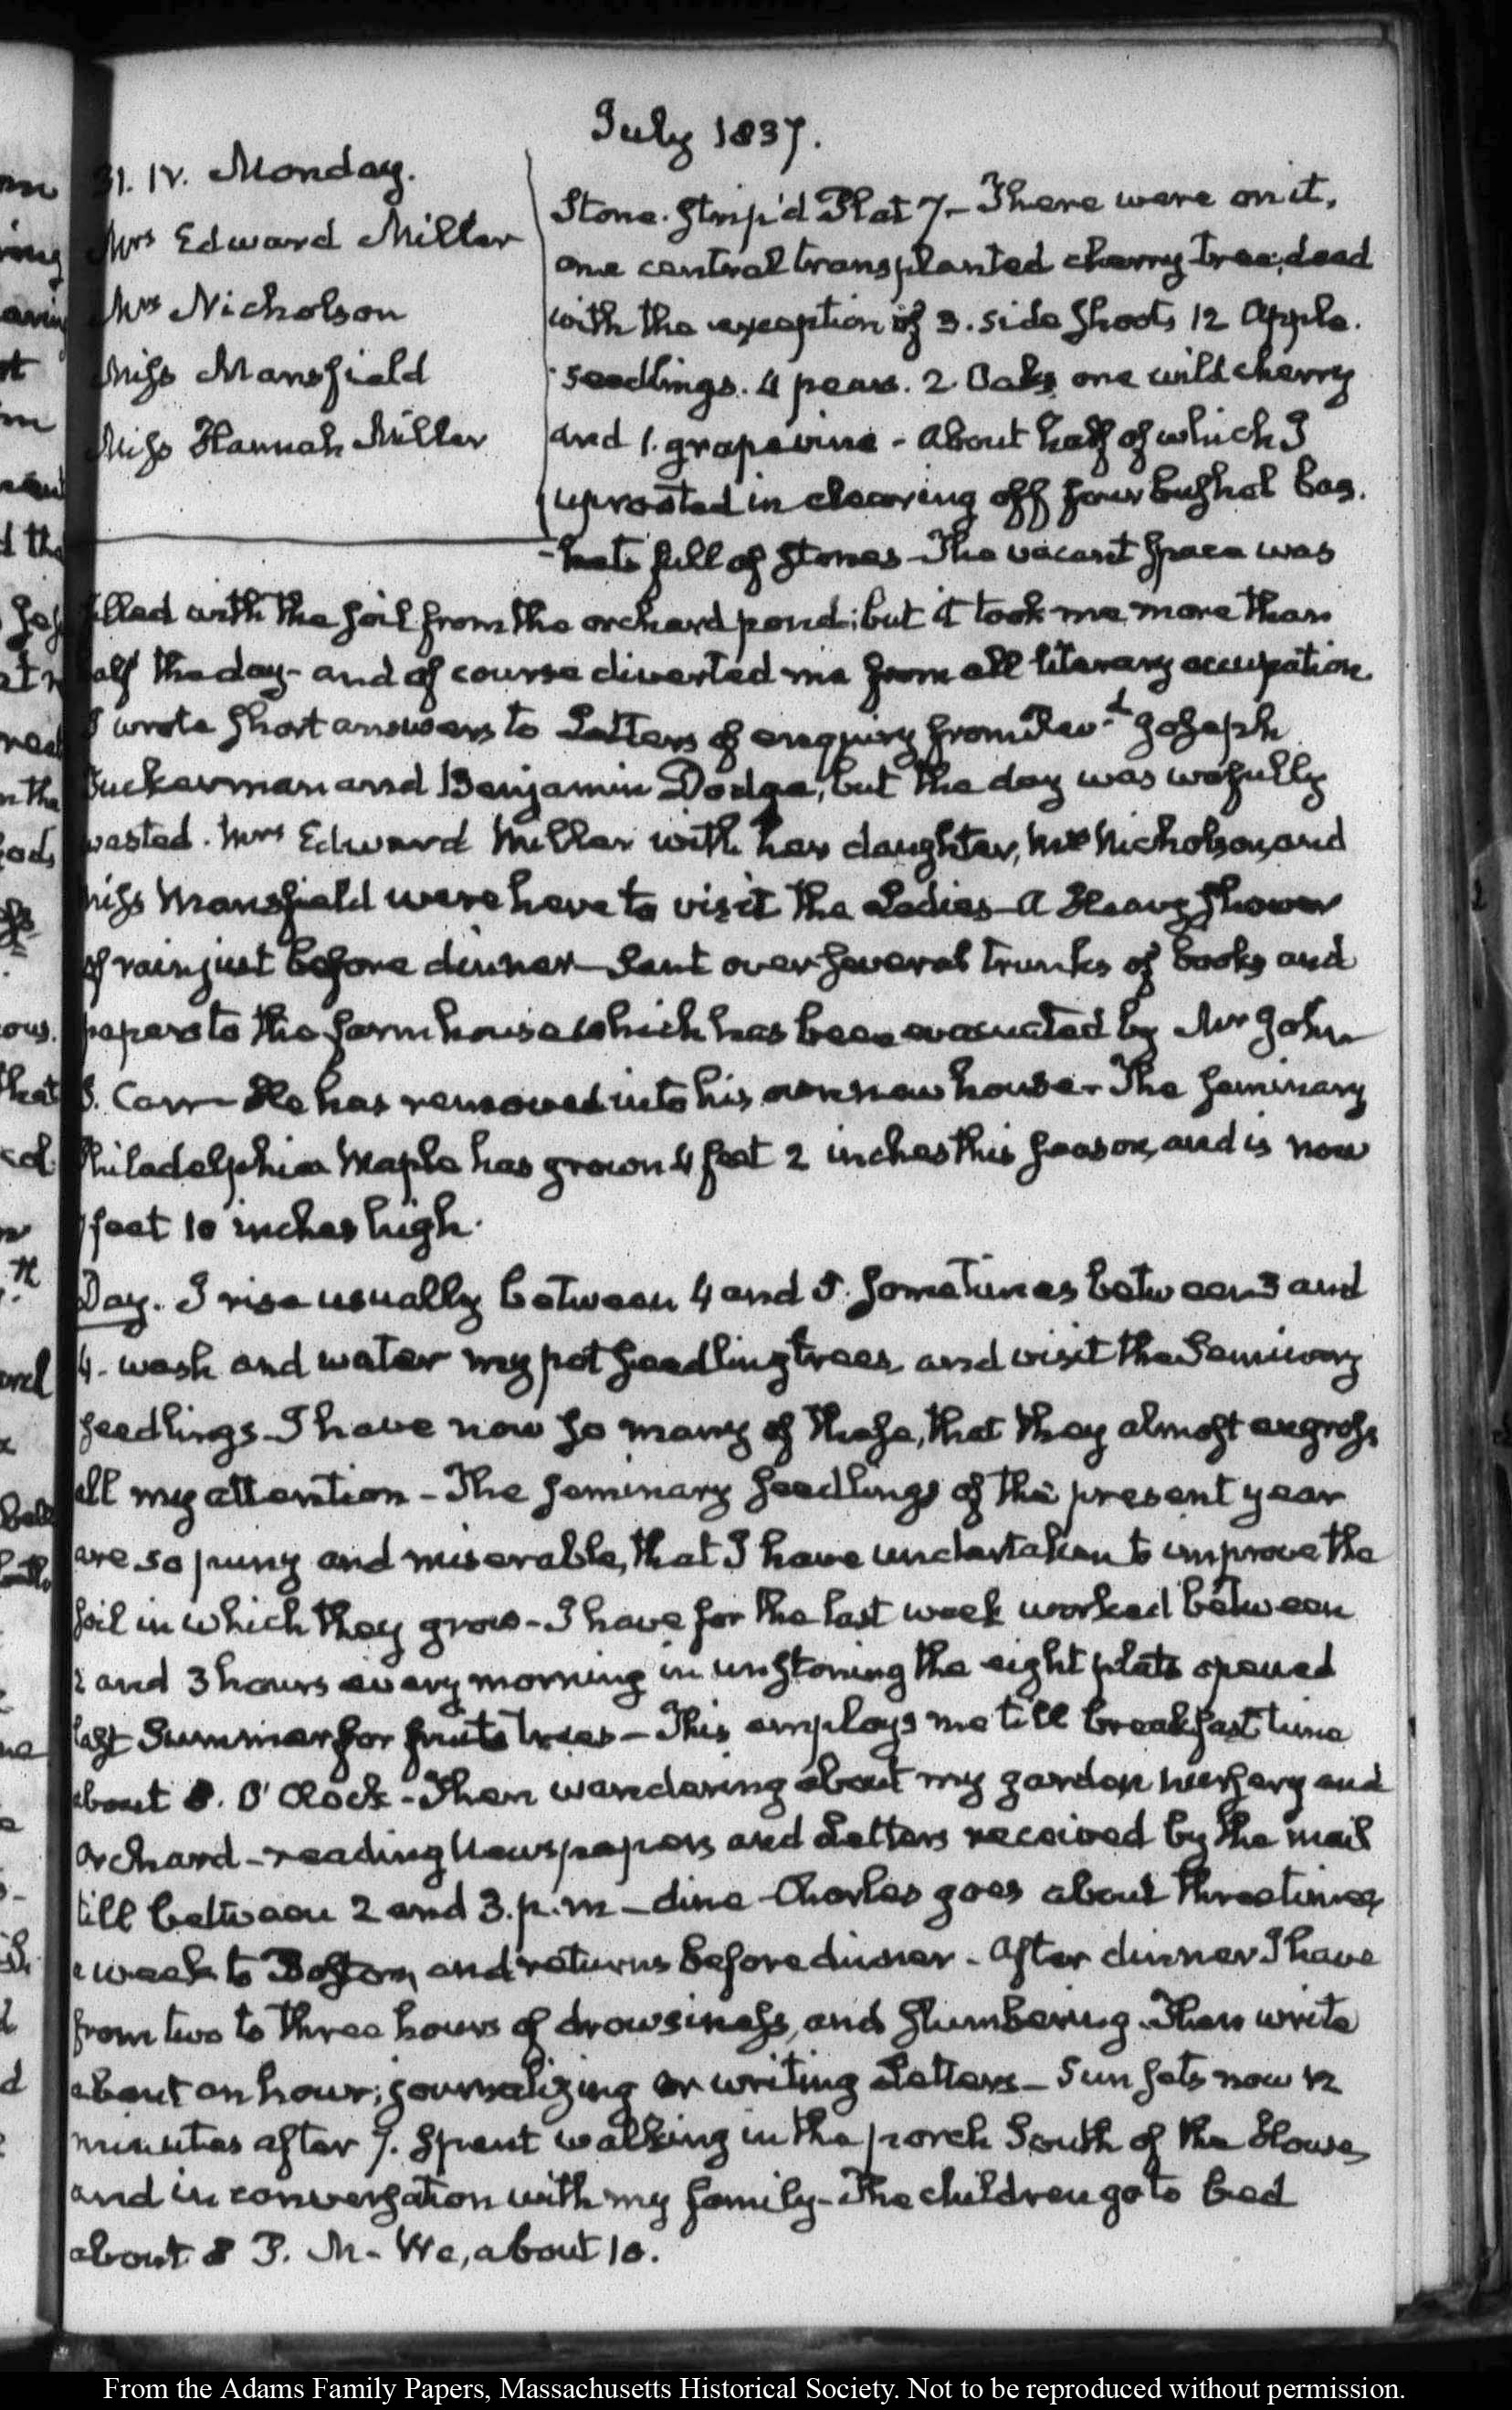 July 1837.
31. IV. Monday.
Mrs Edward Miller
Mrs Nicholson
Miss Mansfield
Miss Hannah Miller
Stone. Strip'd Plat 7 - There were on it,
one central transplanted cherry tree, dead
with the exception of 3. side shoots, 12 Apple.
seedlings. 4 pears. 2 Oaks, one wild cherry
and 1. grapevine - About half of which I
uprooted in clearing off four bushel bas.
-kets full of stones - The vacant space was
filled with the soil from the orchard pond; but it took me more than
half the day - and of course diverted me from all literary occupation.
I wrote short answers to Letters of enquiry from Revd Joseph
Tuckerman and Benjamin Dodge, but the day was wofully
wasted. Mrs Edward Miller with her daughter, Mrs Nicholson, and
Miss Mansfield were here to visit the Ladies - A Heavy shower
of rain just before dinner - Sent over several trunks of books and
papers to the farm house which has been evacuated by Mr John
S. Carr - He has removed into his own new house - The Seminary
Philadelphia Maple has grown 4 feet 2 inches this season, and is now
feet 10 inches high.
Day. I rise usually between 4 and 5. sometimes between 3 and
4. wash and water my pot seedling trees and visit the Seminary
seedlings - I have now so many of these, that they almost engross
all my attention - The Seminary seedlings of the present year
are so puny and miserable, that I have undertaken to improve the
soil in which they grow - I have for the last week worked between
2 and 3 hours every morning in unstoning the eight plats opened
last Summer for fruit trees - This employs me till breakfast time
about 8. O'Clock - Then wandering about my garden, nursery and
Orchard - reading Newspapers and Letters received by the mail
till between 2 and 3. p.m - dine - Charles goes about three times
a week to Boston, and returns before dinner - After dinner I have
from two to three hours of drowsiness, and slumbering. Then write
about an hour; journalizing or writing Letters - Sun sets now 12
minutes after 7. Spent walking in the porch South of the House,
and in conversation with my family - The children go to bed
about 8 P. M - We, about 10.
From the Adams Family Papers, Massachusetts Historical Society. Not to be reproduced without permission.